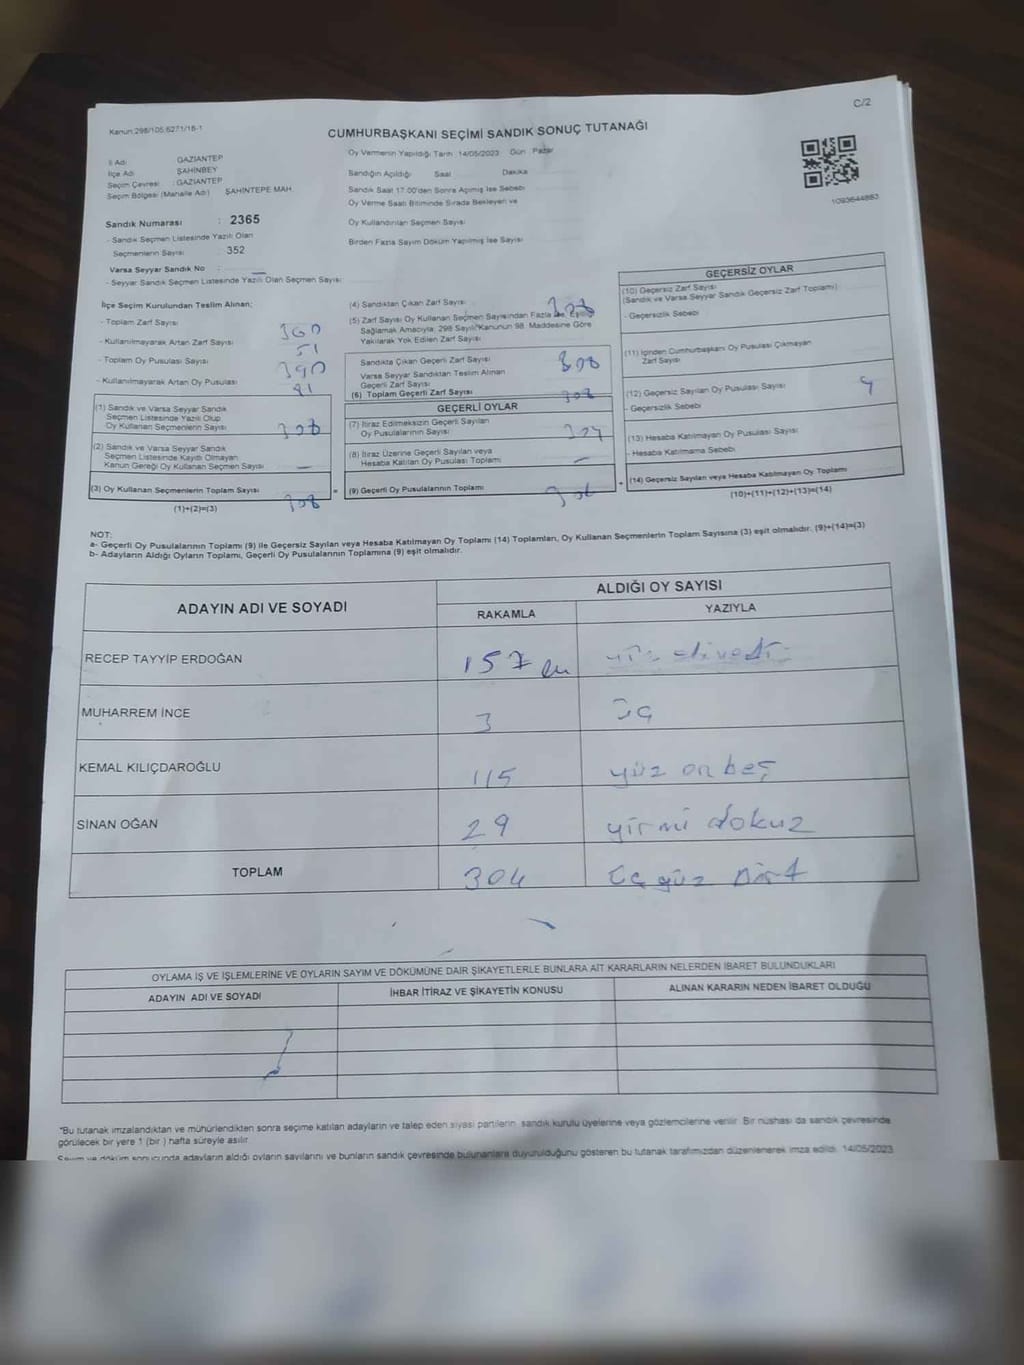 C/2
Kanun:298/105,6271/18-1
CUMHURBAŞKANI SEÇİMİ SANDIK SONUÇ TUTANAĞI
İl Adı GAZİANTEP
İlçe Adı ŞAHİNBEY
Seçim Çevresi : GAZİANTEP
Seçim Bölgesi (Mahalle Adı) ŞAHİNTEPE MAH.
Oy Vermenin Yapıldığı Tarih 14/05/2023 Gün Pazar
Sandığın Açıldığı Saat Dakika
Sandık Saat 17:00'den Sonra Açılmış İse Sebebi
Oy Verme Saati Bitiminde Sırada Bekleyen ve
Oy Kullandırılan Seçmen Sayısı
Birden Fazla Sayım Döküm Yapılmış İse Sayısı
1093644663
Sandık Numarası : 2365
- Sandık Seçmen Listesinde Yazılı Olan
Seçmenlerin Sayısı : 352
Varsa Seyyar Sandık No :
- Seyyar Sandık Seçmen Listesinde Yazılı Olan Seçmen Sayısı
İlçe Seçim Kurulundan Teslim Alınan;
- Toplam Zarf Sayısı 360
- Kullanılmayarak Artan Zarf Sayısı 51
- Toplam Oy Pusulası Sayısı 390
- Kullanılmayarak Artan Oy Pusulası
(1) Sandık ve Varsa Seyyar Sandık
Seçmen Listesinde Yazılı Olup
Oy Kullanan Seçmenlerin Sayısı 308
(2) Sandık ve Varsa Seyyar Sandık
Seçmen Listesinde Kayıtlı Olmayan
Kanun Gereği Oy Kullanan Seçmen Sayısı —
(3) Oy Kullanan Seçmenlerin Toplam Sayısı 308
(1)+(2)=(3)
(4) Sandıktan Çıkan Zarf Sayısı 308
(5) Zarf Sayısı Oy Kullanan Seçmen Sayısından Fazla İse, Eşitliği
Sağlamak Amacıyla; 298 Sayılı Kanunun 98. Maddesine Göre
Yakılarak Yok Edilen Zarf Sayısı
Sandıkta Çıkan Geçerli Zarf Sayısı 308
Varsa Seyyar Sandıktan Teslim Alınan
Geçerli Zarf Sayısı
(6) Toplam Geçerli Zarf Sayısı 308
GEÇERLİ OYLAR
(7) İtiraz Edilmeksizin Geçerli Sayılan
Oy Pusulalarının Sayısı 304
(8) İtiraz Üzerine Geçerli Sayılan veya
Hesaba Katılan Oy Pusulası Toplamı —
= (9) Geçerli Oy Pusulalarının Toplamı
GEÇERSİZ OYLAR
(10) Geçersiz Zarf Sayısı
(Sandık ve Varsa Seyyar Sandık Geçersiz Zarf Toplamı)
- Geçersizlik Sebebi
(11) İçinden Cumhurbaşkanı Oy Pusulası Çıkmayan
Zarf Sayısı
(12) Geçersiz Sayılan Oy Pusulası Sayısı 4
- Geçersizlik Sebebi
(13) Hesaba Katılmayan Oy Pusulası Sayısı
- Hesaba Katılmama Sebebi
+ (14) Geçersiz Sayılan veya Hesaba Katılmayan Oy Toplamı
(10)+(11)+(12)+(13)=(14)
NOT:
a- Geçerli Oy Pusulalarının Toplamı (9) ile Geçersiz Sayılan veya Hesaba Katılmayan Oy Toplamı (14) Toplamları, Oy Kullanan Seçmenlerin Toplam Sayısına (3) eşit olmalıdır. (9)+(14)=(3)
b- Adayların Aldığı Oyların Toplamı, Geçerli Oy Pusulalarının Toplamına (9) eşit olmalıdır.
ADAYIN ADI VE SOYADI ALDIĞI OY SAYISI
RAKAMLA YAZIYLA
RECEP TAYYİP ERDOĞAN 157
MUHARREM İNCE 3 üç
KEMAL KILIÇDAROĞLU 115 yüz on beş
SİNAN OĞAN 29 yirmi dokuz
TOPLAM 304 üç yüz dört
OYLAMA İŞ VE İŞLEMLERİNE VE OYLARIN SAYIM VE DÖKÜMÜNE DAİR ŞİKAYETLERLE BUNLARA AİT KARARLARIN NELERDEN İBARET BULUNDUKLARI
ADAYIN ADI VE SOYADI İHBAR İTİRAZ VE ŞİKAYETİN KONUSU ALINAN KARARIN NEDEN İBARET OLDUĞU
"Bu tutanak imzalandıktan ve mühürlendikten sonra seçime katılan adayların ve talep eden siyasi partilerin sandık kurulu üyelerine veya gözlemcilerine verilir. Bir nüshası da sandık çevresinde
görülecek bir yere 1 (bir) hafta süreyle asılır.
Seçim ve döküm sonucunda adayların aldığı oyların sayılarını ve bunların sandık çevresinde bulunanlara duyurulduğunu gösteren bu tutanak tarafımızdan düzenlenerek imza edildi. 14/05/2023